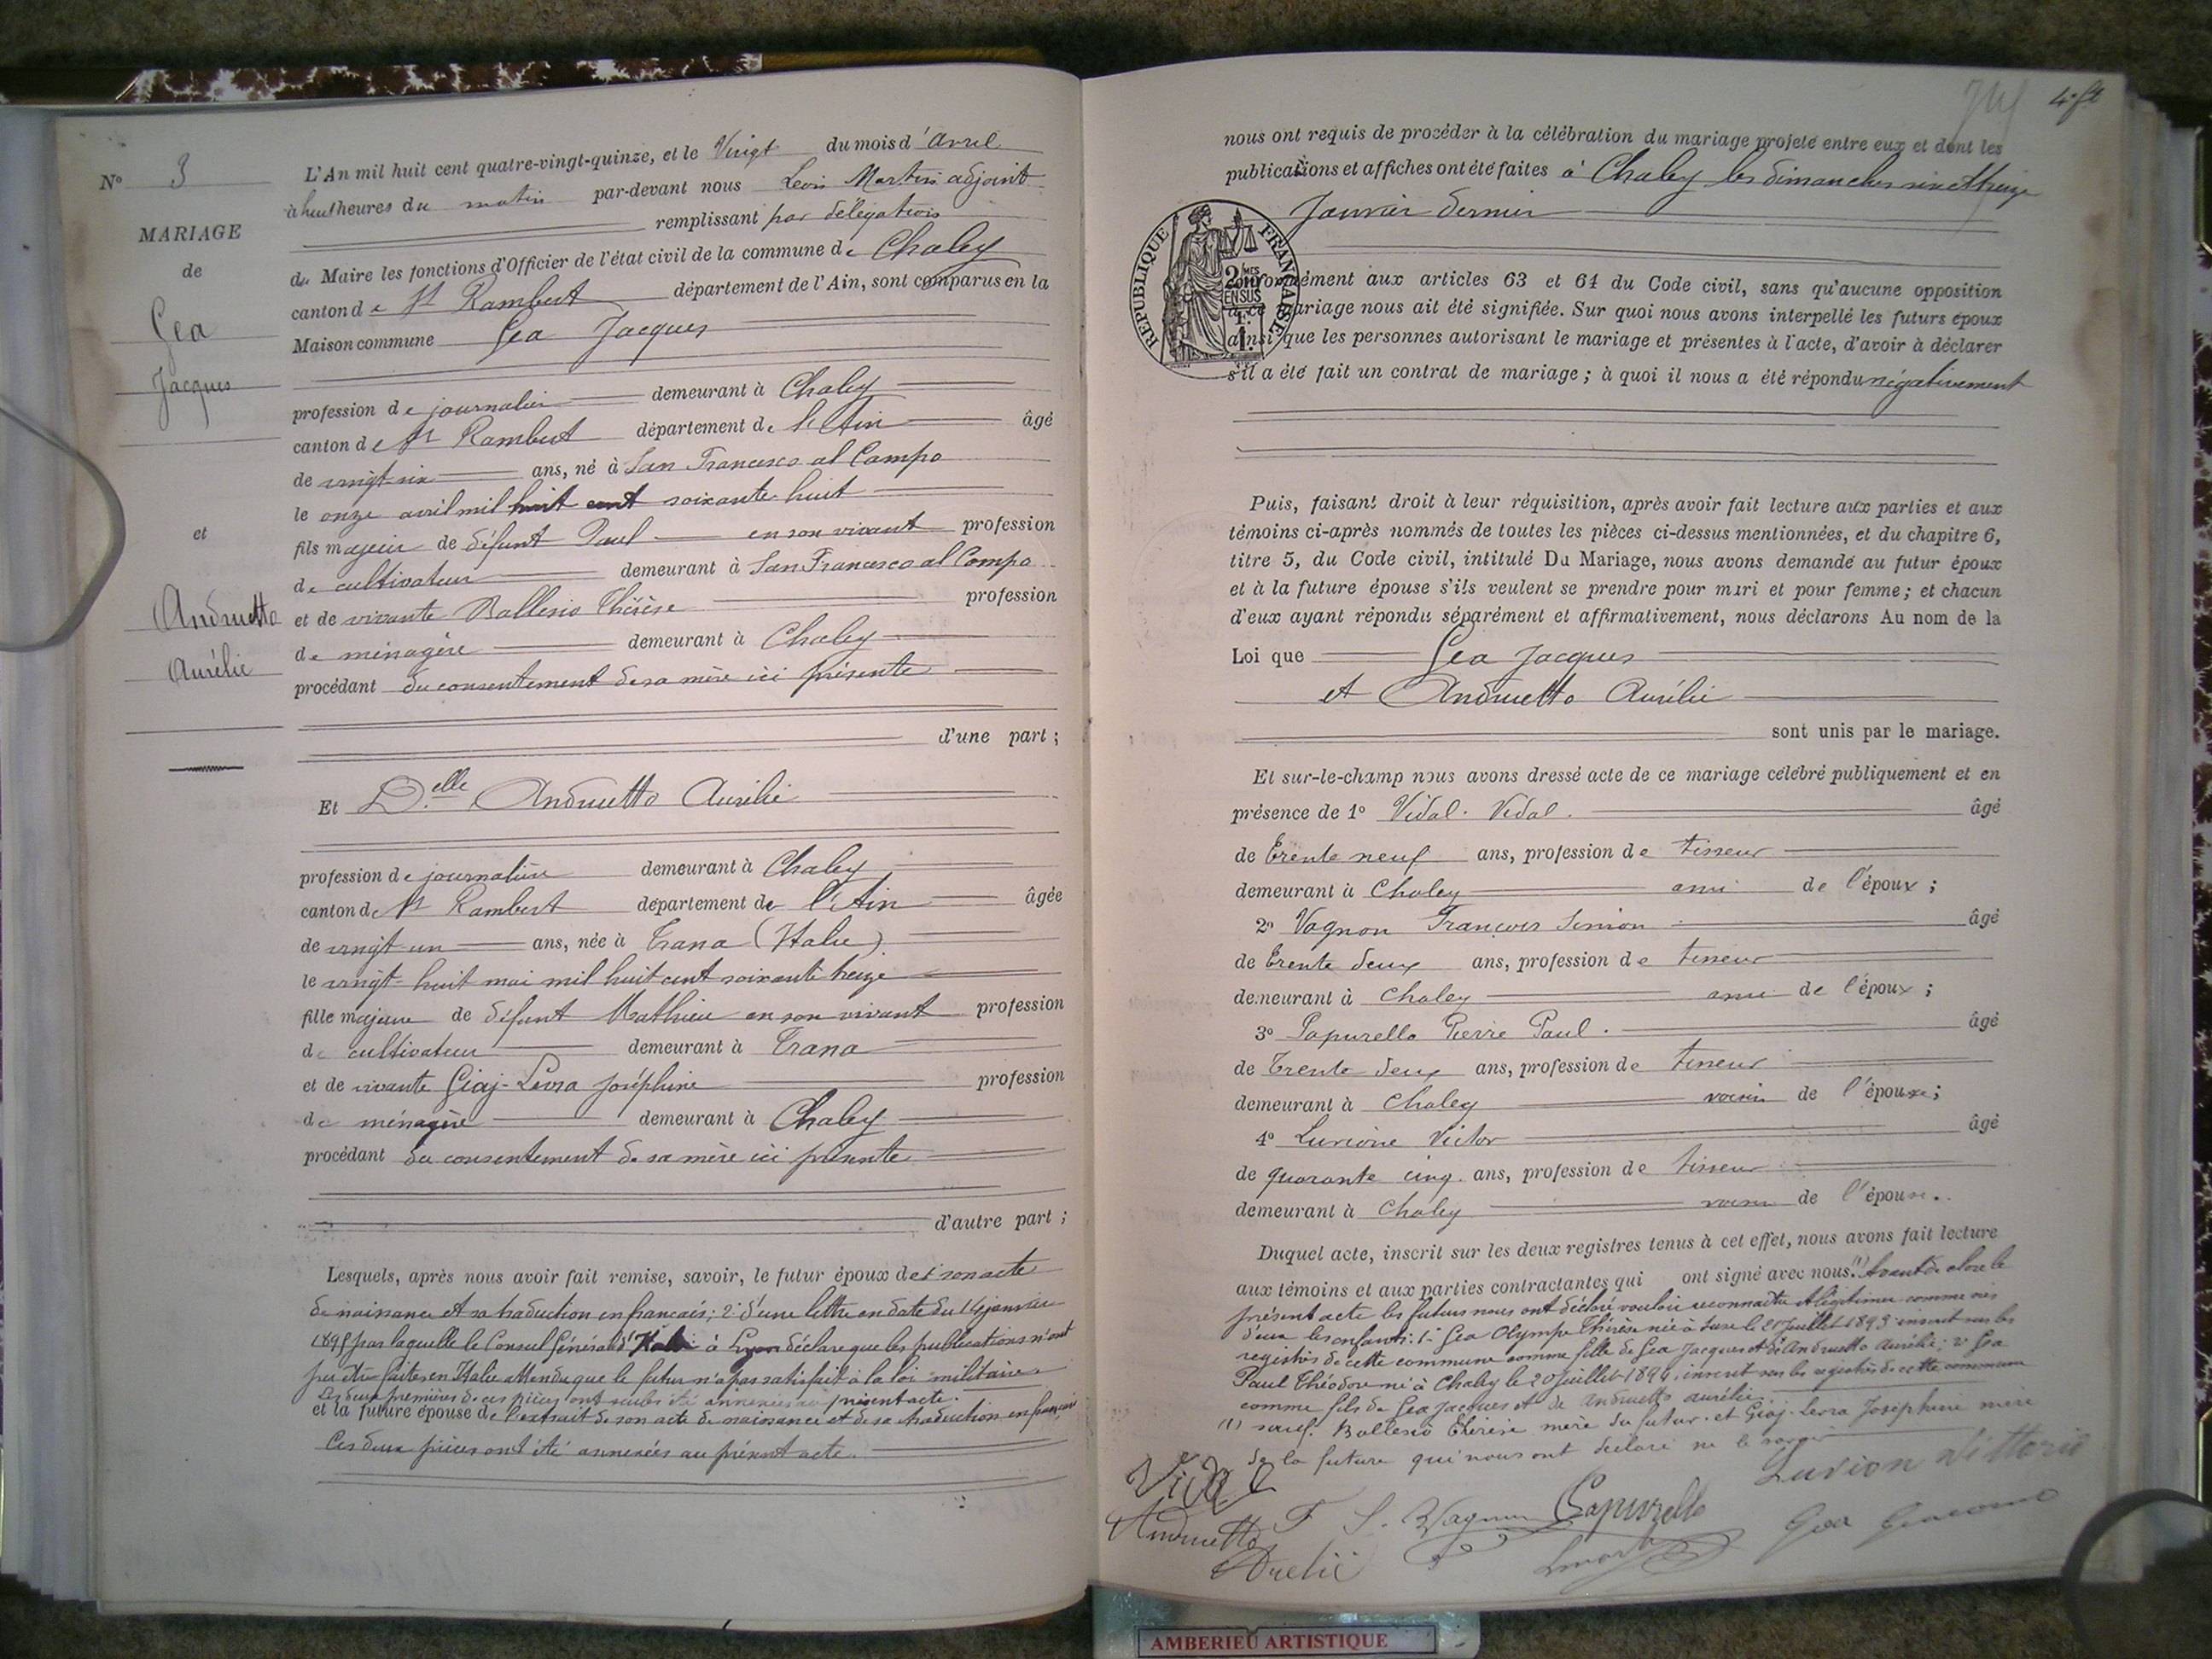 N° 3
MARIAGE
de
Gea
Jacques
et
Andruetto
Aurélie
L'An mil huit cent quatre-vingt-quinze, et le Vingt du mois d'avril
à huit heures du matin par-devant nous Léon Martin adjoint
remplissant par délégation
du Maire les fonctions d'Officier de l'état civil de la commune de Chaley
canton de St Rambert département de l'Ain, sont comparus en la
Maison commune Gea Jacques
profession de journalier demeurant à Chaley
canton de St Rambert département de l'Ain âgé
de vingt six ans, né à San Francesco al Campo
le onze avril mil huit cent soixante huit
fils majeur de défunt Paul en son vivant profession
de cultivateur demeurant à San Francesco al Campo
et de vivante Ballesio Thérèse profession
de ménagère demeurant à Chaley
procédant du consentement de sa mère ici présente
d'une part ;
Et Delle Andruetto Aurélie
profession de journalière demeurant à Chaley
canton de St Rambert département de l'Ain âgée
de vingt un ans, née à Trana (Italie)
le vingt-huit mai mil huit cent soixante treize
fille majeure de défunt Mathieu en son vivant profession
de cultivateur demeurant à Trana
et de vivante Giaj-Levra Joséphine profession
de ménagère demeurant à Chaley
procédant du consentement de sa mère ici présente
d'autre part ;
Lesquels, après nous avoir fait remise, savoir, le futur époux de 1° son acte
de naissance et sa traduction en français ; 2° d'une lettre en date du 14 janvier
1895 par laquelle le Consul Général d'Italie à Lyon déclare que les publications n'ont
pu être faites en Italie attendu que le futur n'a pas satisfait à la loi militaire
Les deux premières de ces pièces ont seules été annexées au présent acte.
et la future épouse de l'extrait de son acte de naissance et de sa traduction en français
Ces deux pièces ont été annexées au présent acte.
4e ft
nous ont requis de procéder à la célébration du mariage projeté entre eux et dont les
publications et affiches ont été faites à Chaley les dimanches six et treize
Janvier dernier
REPUBLIQUE FRANÇAISE
2 10MES EN SUS
conformément aux articles 63 et 64 du Code civil, sans qu'aucune opposition
à ce mariage nous ait été signifiée. Sur quoi nous avons interpellé les futurs époux
ainsi que les personnes autorisant le mariage et présentes à l'acte, d'avoir à déclarer
s'il a été fait un contrat de mariage ; à quoi il nous a été répondu négativement
Puis, faisant droit à leur réquisition, après avoir fait lecture aux parties et aux
témoins ci-après nommés de toutes les pièces ci-dessus mentionnées, et du chapitre 6,
titre 5, du Code civil, intitulé Du Mariage, nous avons demandé au futur époux
et à la future épouse s'ils veulent se prendre pour mari et pour femme ; et chacun
d'eux ayant répondu séparément et affirmativement, nous déclarons Au nom de la
Loi que Gea Jacques
et Andruetto Aurélie
sont unis par le mariage.
Et sur-le-champ nous avons dressé acte de ce mariage célébré publiquement et en
présence de 1° Vidal. Vidal. âgé
de trente neuf ans, profession de tisseur
demeurant à Chaley ami de l'époux ;
2° Vagnon François Simon âgé
de trente deux ans, profession de tisseur
demeurant à Chaley ami de l'époux ;
3° Papurello Pierre Paul. âgé
de trente deux ans, profession de tisseur
demeurant à Chaley voisin de l'épouse ;
4° Luvione Victor âgé
de quarante cinq ans, profession de tisseur
demeurant à Chaley voisin de l'épouse.
Duquel acte, inscrit sur les deux registres tenus à cet effet, nous avons fait lecture
aux témoins et aux parties contractantes qui ont signé avec nous.(1) Avant de clore le
présent acte les futurs nous ont déclaré vouloir reconnaître et légitimer comme nés
d'eux les enfants: 1° Gea Olympe Thérèse née à le Juillet 1893 inscrit sur les
registres de cette commune comme fille de Gea Jacques et d'Andruetto Aurélie ; 2° Gea
Paul Théodore né à Chaley le 20 Juillet 1894, inscrit sur les registres de cette commune
comme fils de Gea Jacques et de Andruetto Aurélie.
(1) sauf. Ballesio Thérèse mère du futur. et Giaj-Levra Joséphine mère
de la future qui nous ont déclaré ne le savoir
Vidal
Luvion Vittorio
F S. Vagnon
Papurello
Andruetto
Aurelie
Gea Giacomo
AMBERIEU ARTISTIQUE